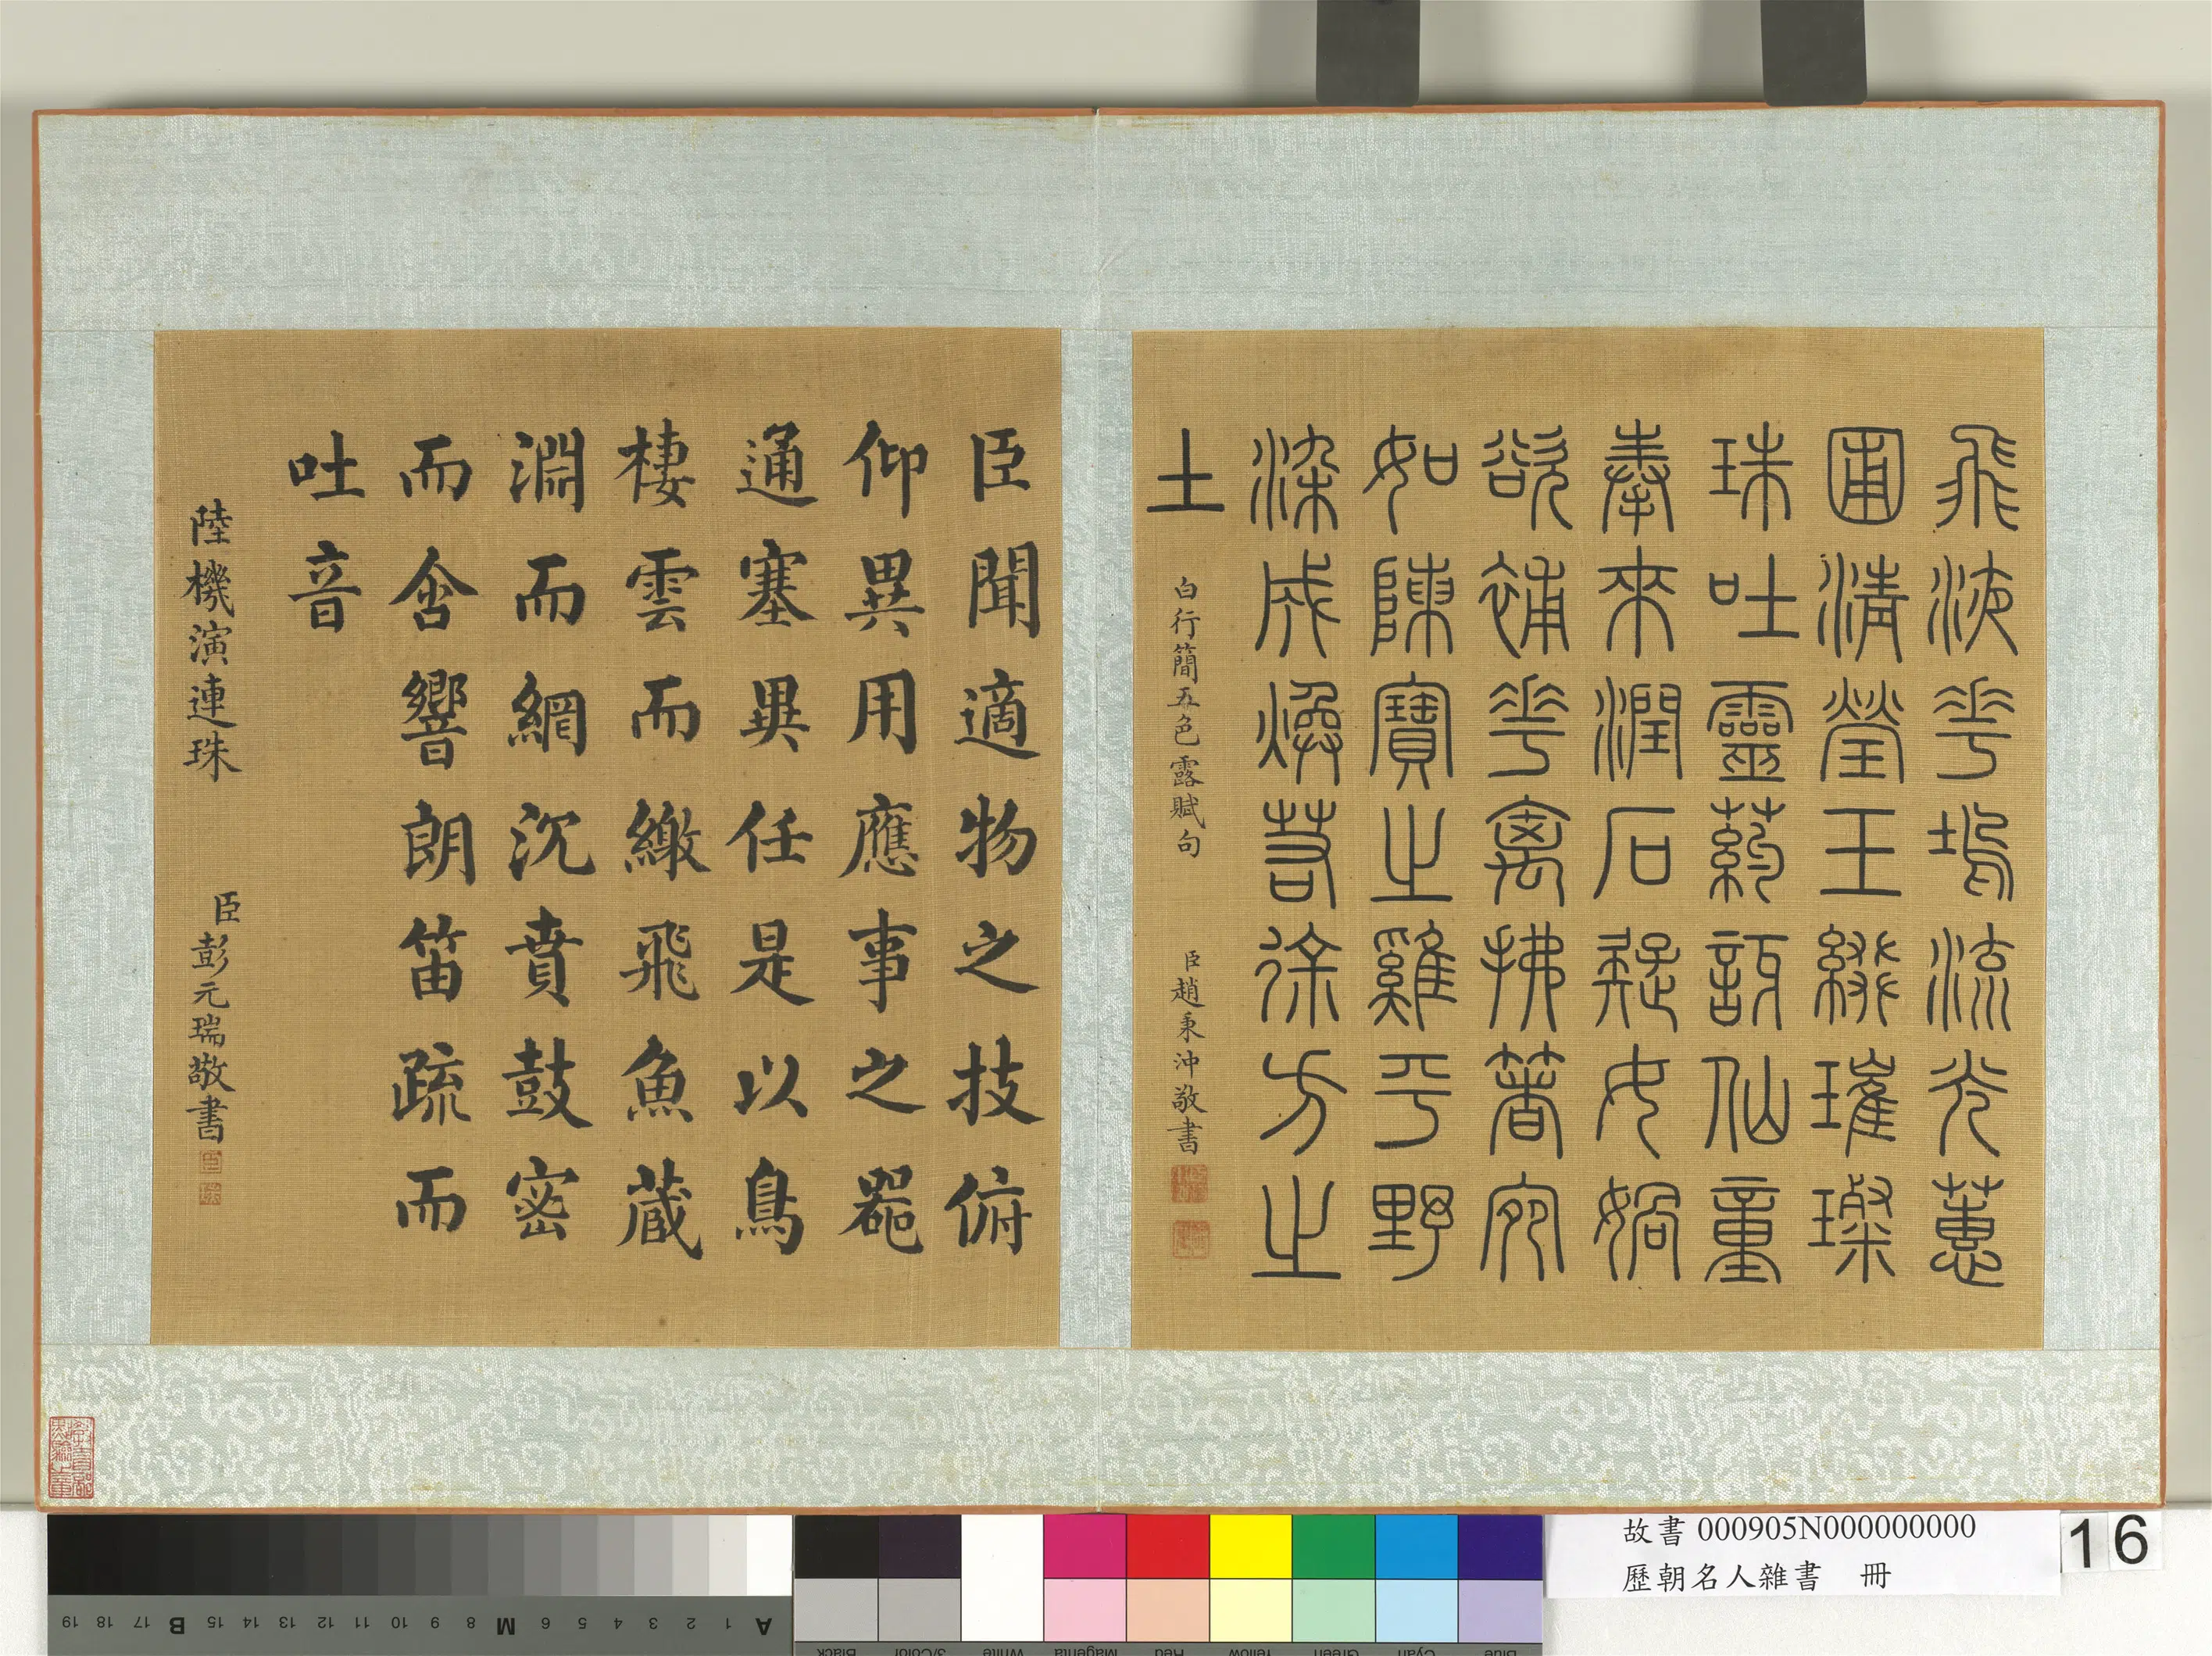 飛液花塢流光蕙
圃清瑩玉綴璀璨
珠吐靈葯訝仙童
奉來潤石疑女媧
欲補花拂著宛
如陳寶之雞平野
染成煥若徐方之
土
白行簡五色露賦句
臣趙秉沖敬書
臣聞適物之技俯
仰異用應事之器
通塞異任是以鳥
棲雲而繳飛魚藏
淵而網沉賁鼓密
而含響朗笛疏而
吐音
陸機演連珠
臣彭元瑞敬書
故書 000905N000000000
歷朝名人雜書 冊
16
19 18 17 B 15 14 13 12 11 10 9 8 M 6 5 4 3 2 1 A
Black 3/Color White Magenta Red Yellow Green Cyan Blue